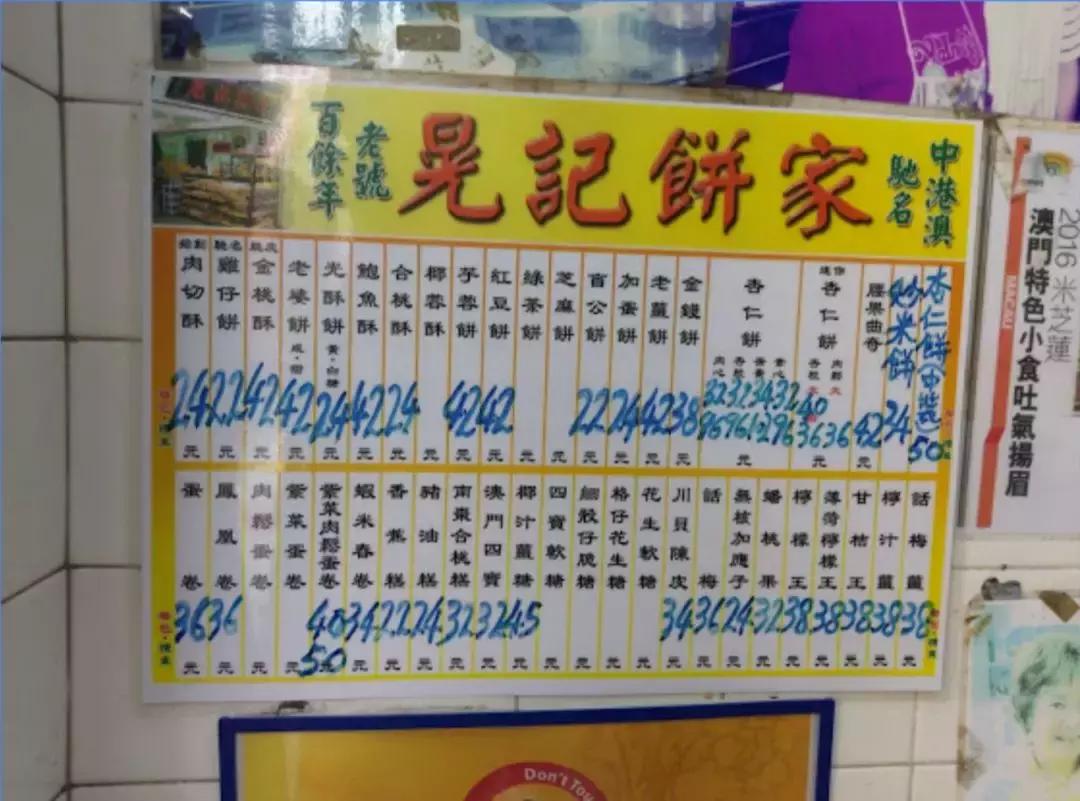 百餘年
老號
晃記餅家
馳名
中港澳
肉切酥 24 元
馳名
雞仔餅 22 元
金桃酥 42 元
老婆餅 咸·甜 42 元
光酥餅 黃·白糖 24 元
鮑魚酥 42 元
合桃酥 24 元
椰蓉酥 元
芋蓉餅 42 元
紅豆餅 42 元
綠茶餅 元
芝麻餅 元
百公餅 22 元
加蛋餅 24 元
老薑餅 42 元
金錢餅 38 元
杏仁餅
肉心 杏粒 蛋黃 素心
32 32 34 32
96 96 129 96
元
杏仁餅
杏粒 肉鬆
40
36 36
元
腰果曲奇 42 元
炒米餅 24
杏仁餅(中裝) 50
蛋卷 36 元
鳳凰卷 36 元
肉鬆蛋卷 元
紫菜蛋卷 元
紫菜肉鬆蛋卷 40 50 元
蝦米春卷 34 元
香蕉糕 22 元
豬油糕 24 元
南棗合桃糕 32 元
澳門四寶 32 元
椰汁薑糖 45 元
四寶軟糖 元
鋼骰仔脆糖 元
格仔花生糖 元
花生軟糖 元
川貝陳皮 34 元
話梅 36 元
無核加應子 24 元
蟠桃果 32 元
檸檬王 38 元
薄荷檸檬王 38 元
甘桔王 38 元
檸汁薑 38 元
話梅薑 38 元
2016 米芝蓮
澳門特色小食吐氣揚眉
MACAU
Don't Tou